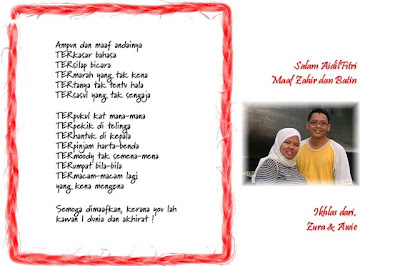 Ampun dan maaf andainya
TERkasar bahasa
TERsilap bicara
TERmarah yang tak kena
TERtanya tak tentu hala
TERsasul yang tak sengaja

TERpukul kat mana-mana
TERpekik di telinga
TERhantuk di kepala
TERpinjam harta-benda
TERmoody tak semena-mena
TERumpat bila-bila
TERmacam-macam lagi
yang kena mengena

Semoga dimaafkan, kerana you lah
kawan I dunia dan akhirat !

Salam Aidilfitri
Maaf Zahir dan Batin

Ikhlas dari,
Zura & Awie